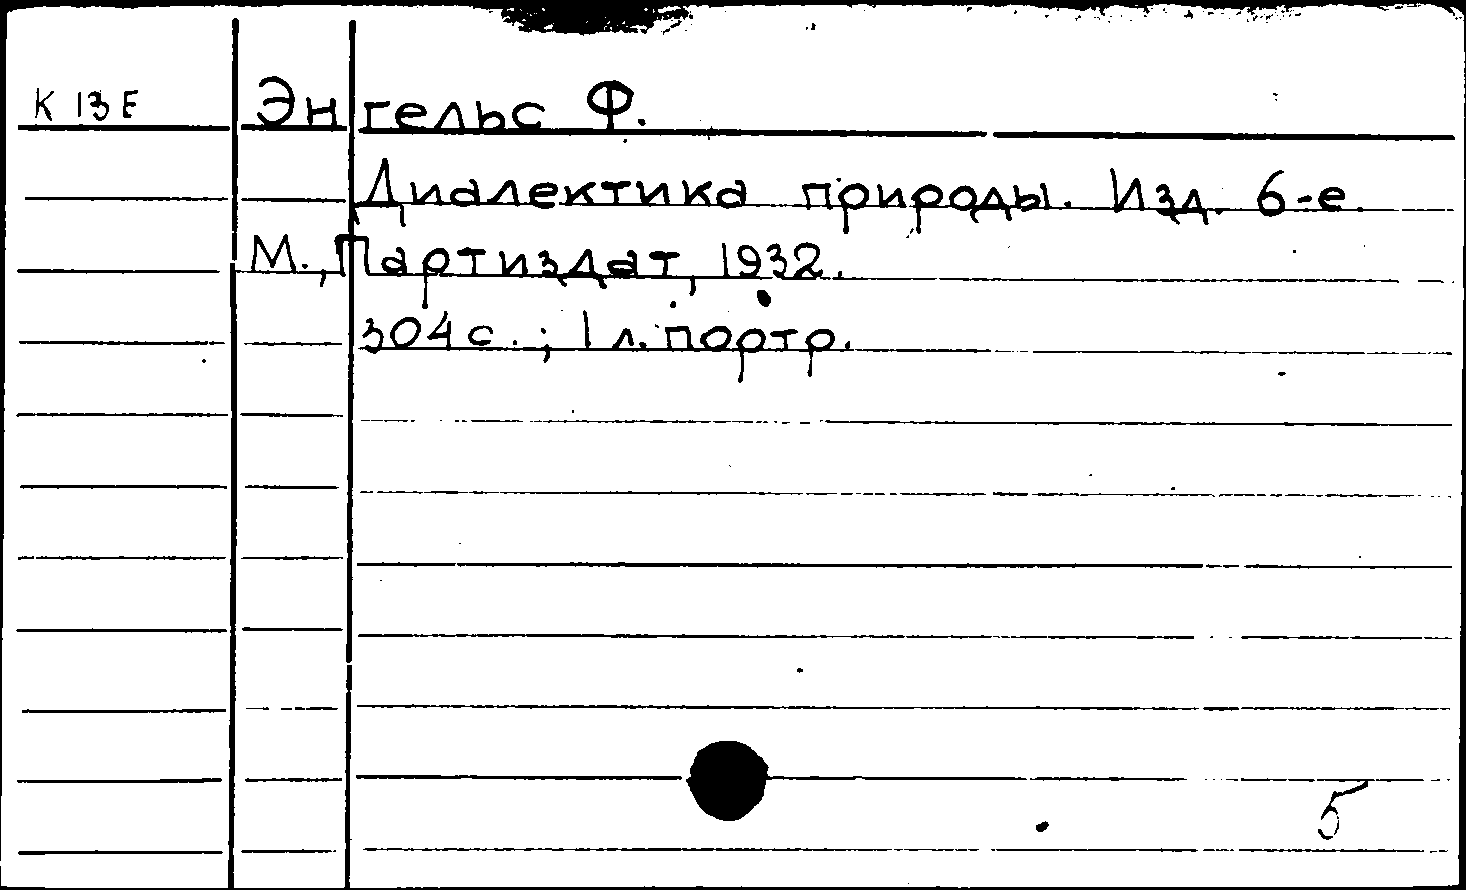 К 13 Е Энгельс Ф.
Диалектика природы. Изд. 6-е.
М., Партиздат, 1932.
304 с.; 1 л. портр.
5